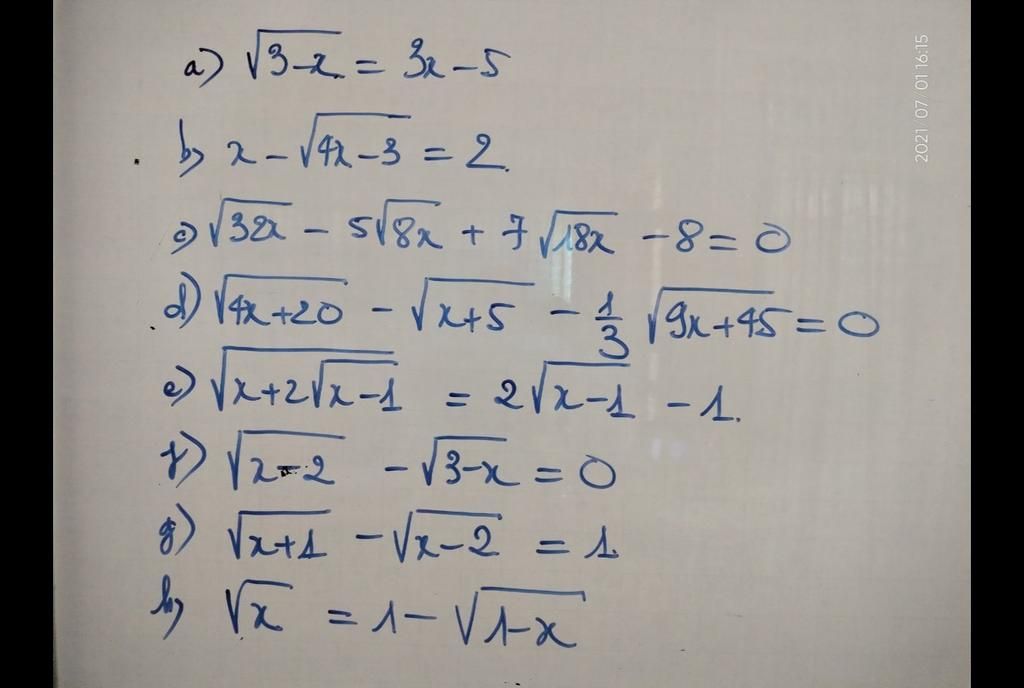 a) √(3-x) = 3x-5
b) x - √(4x-3) = 2.
c) √(32x) - 5√(8x) + 7√(18x) - 8 = 0
d) √(4x+20) - √(x+5) - 1/3 √(9x+45) = 0
e) √(x+2√(x-1)) = 2√(x-1) - 1.
f) √(x-2) - √(3-x) = 0
g) √(x+1) - √(x-2) = 1.
h) √x = 1 - √(1-x)
2021 / 07 / 01 16:15